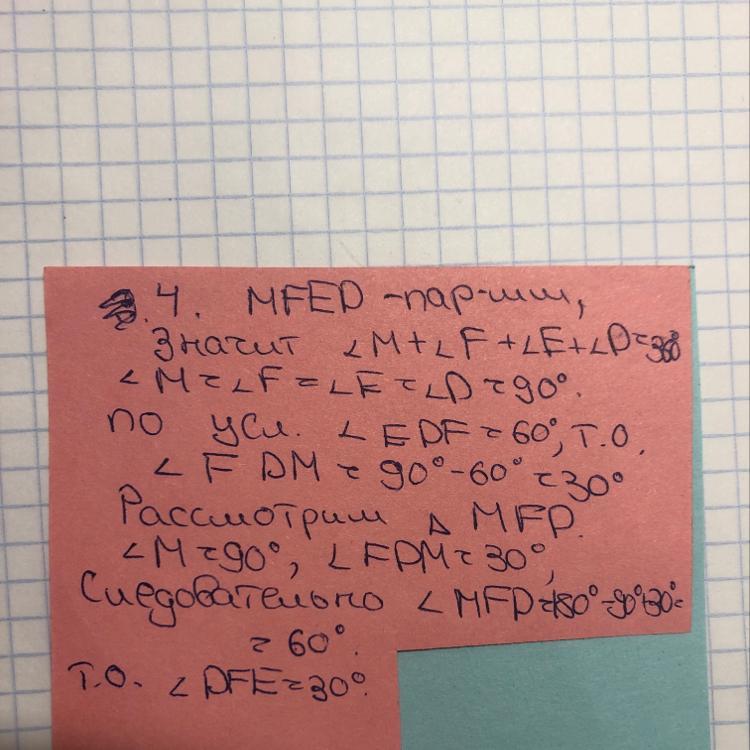 4. MFED -пар-мм,
Значит ∠M+∠F+∠E+∠D=360°
∠M=∠F=∠E=∠D=90°.
по усл. ∠EDF=60°, т.о.
∠FDM=90°-60°=30°
Рассмотрим △MFD.
∠M=90°, ∠FDM=30°,
Следовательно ∠MFD=180°-90°-30°=
=60°.
Т.О. ∠DFE=30°.